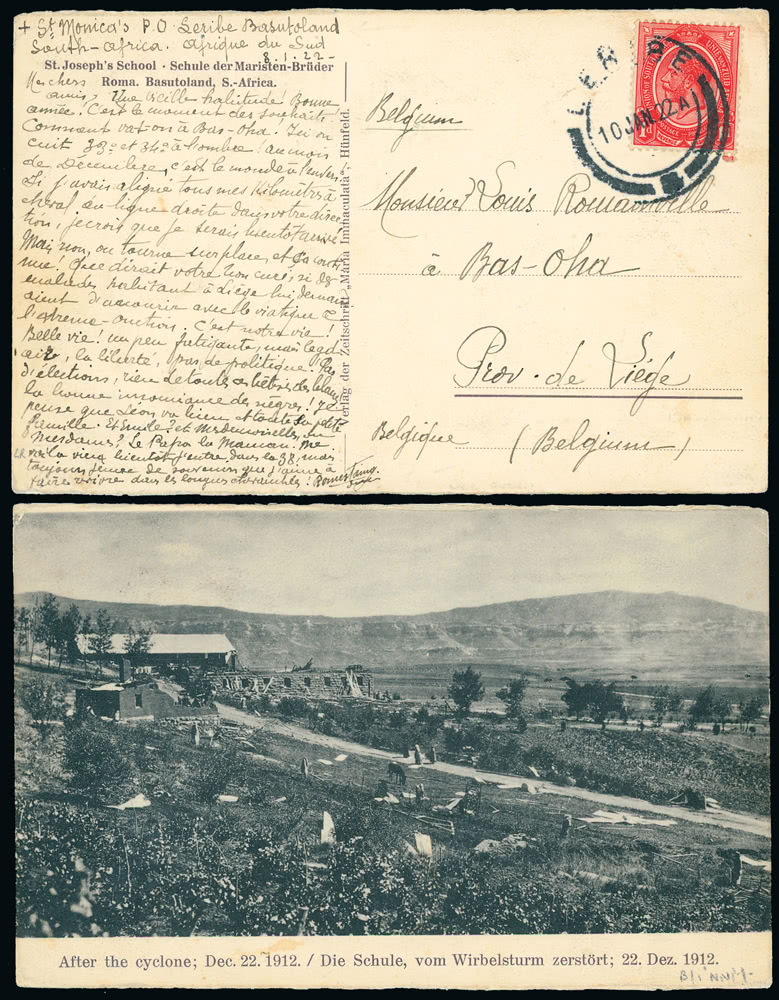 + St Monica's P.O Leribe Basutoland
South-africa. afrique du Sud
8.1.22-
St. Joseph's School · Schule der Maristen-Brüder
Roma. Basutoland, S.-Africa.
Mes chers
amis, Une vieille habitude! Bonne
année! C'est le moment des souhaits.
Comment va-t-on à Bas-Oha? Ici on
cuit 33° et 34° à l'ombre! au mois
de Décembre, c'est le monde à l'envers.
Si j'avais aligné tous mes kilomètres à
cheval en ligne droite dans votre direc
tion, je crois que je serais bientôt arrivé
Mais non, on tourne sur place, et ça conti
nue! Que dirait votre bon curé, si des
malades habitant à Liège lui deman
daient d'accourir avec le viatique &
l'extreme-onction. C'est notre vie!
Belle vie! un peu fatigante, mais le gd
air, la liberté, pas de politique. Pas
d'élections, rien de toutes ces bêtises de blancs
la bonne insouciance des nègres! Je
pense que Léon va bien et toute sa petite
famille. Et Emile? et Mesdemoiselles, ou
Mesdames? Le Papa la Maman. Me
voilà vieux bientôt j'entre dans la 38, mais
toujours jeune de souvenirs que j'aime à
faire revivre dans les longues chevauchées!
Verlag der Zeitschrift „Maria Immaculata“, Hünfeld.
LERIBE
10 JAN 22 A
UNIE VAN ZUID AFRIKA
1d
POSTAGE
REVENUE
Belgium
Monsieur Louis Romainville
à Bas-Oha
Prov. de Liége
Belgique (Belgium)
After the cyclone; Dec. 22. 1912. / Die Schule, vom Wirbelsturm zerstört; 22. Dez. 1912.